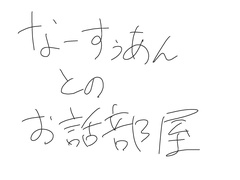 なーすぅあん
との
お話部屋